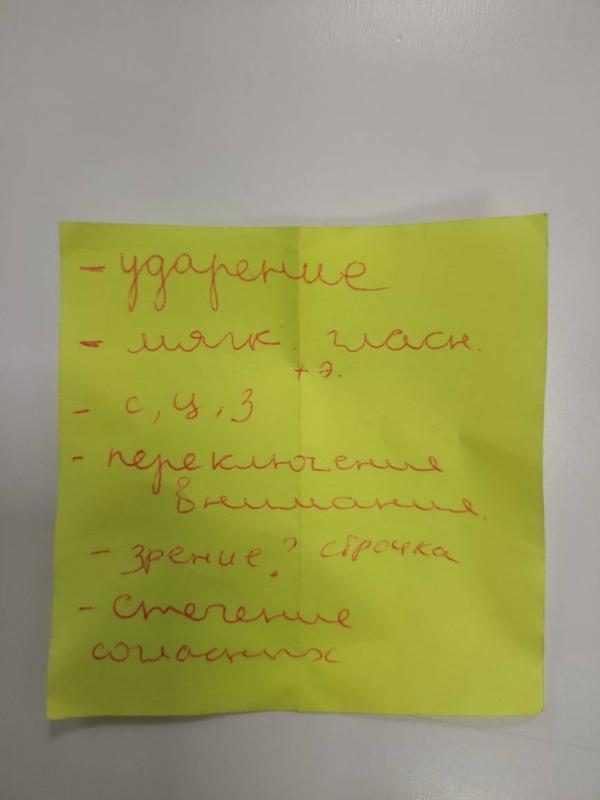 - ударение
- мягк. гласн.
+ э.
- с, ц, з
- переключения
внимания.
- зрение? строчка
- стечение
согласных